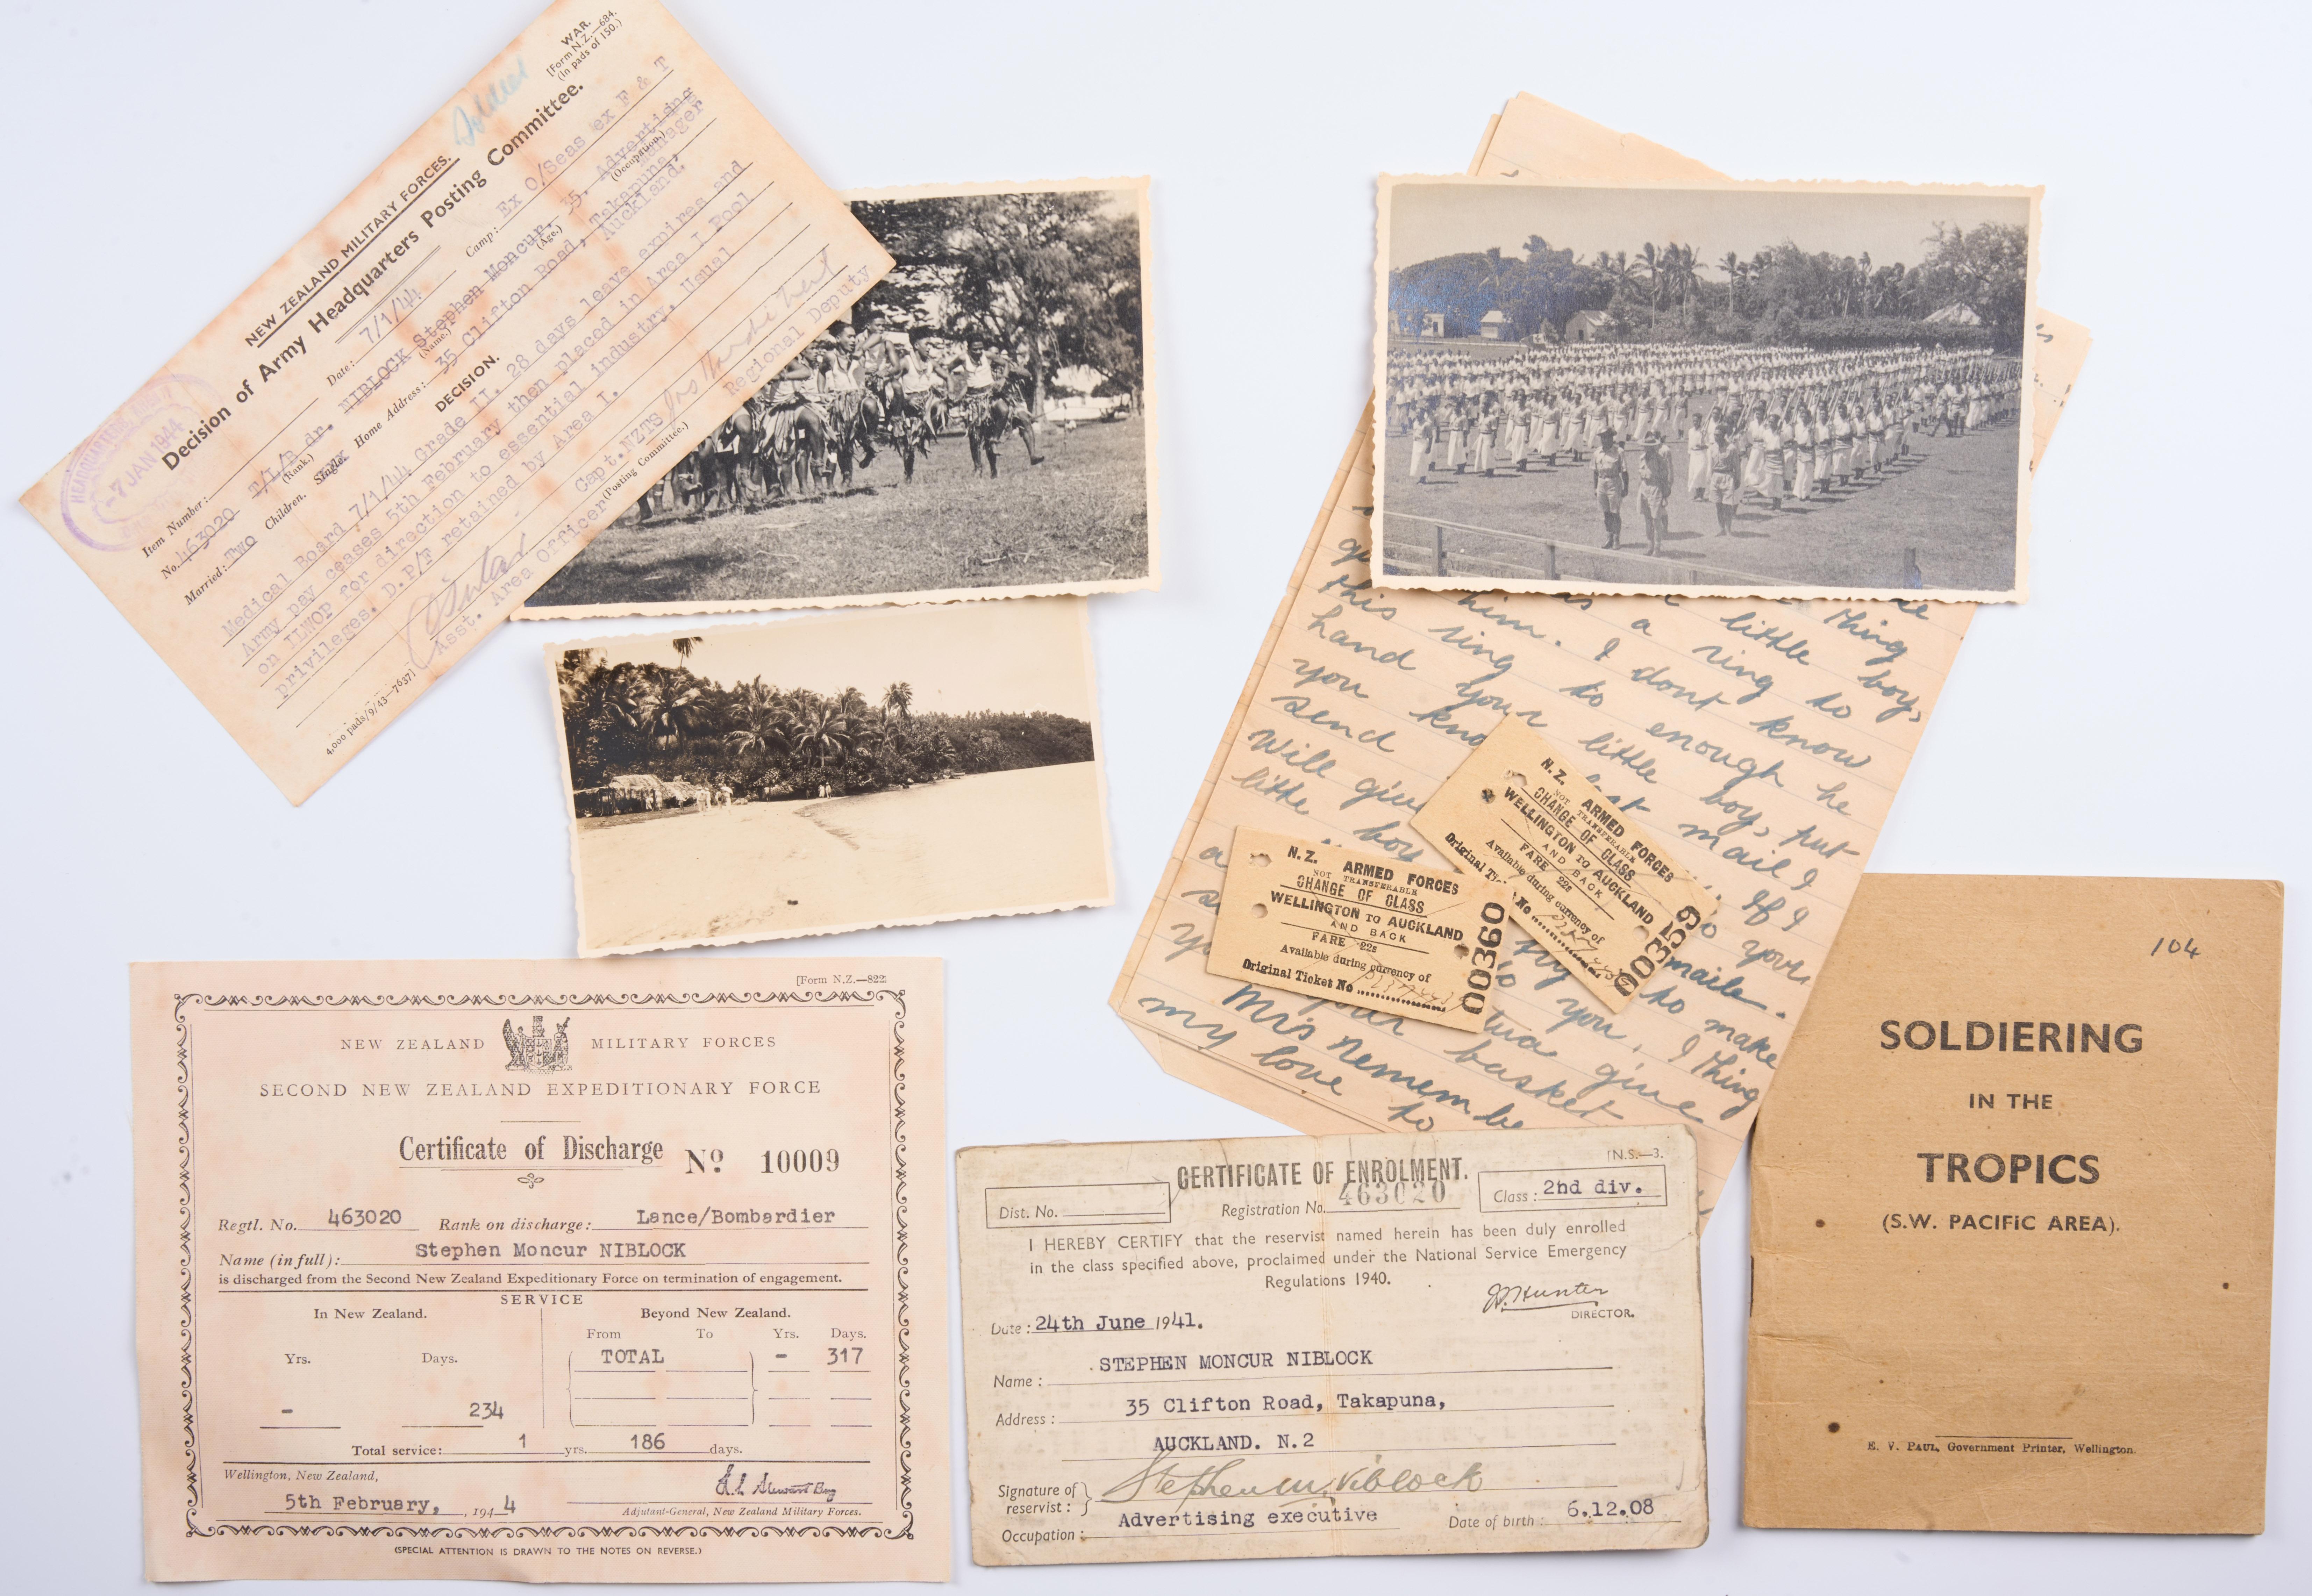 WAR.
[Form N.Z.—684.
(In pads of 150.)
Soldier
NEW ZEALAND MILITARY FORCES.
Decision of Army Headquarters Posting Committee.
HEADQUARTERS
-7 JAN 1944
Date: 7/1/44 Camp: Ex O/Seas ex F & T
Item Number:
No. 463020 T/L/Bdr. NIBLOCK Stephen Moncur. 35. Advertising Manager
(Rank.) (Name.) (Age.) (Occupation.)
Married: TWO Children. Single. Home Address: 35 Clifton Road, Takapuna, Auckland.
DECISION.
Medical Board 7/1/44 Grade II. 28 days leave expires and
Army pay ceases 5th February then placed in Area I Pool
on ILWOP for direction to essential industry. Usual
privileges. D.P/F retained by Area I.
Capt. NZTS
Asst. Area Officer (Posting Committee.) Regional Deputy
4,000 pads/9/43—7637]
[Form N.Z.—822
NEW ZEALAND MILITARY FORCES
SECOND NEW ZEALAND EXPEDITIONARY FORCE
Certificate of Discharge No. 10009
Regtl. No. 463020 Rank on discharge: Lance/Bombardier
Name (in full): Stephen Moncur NIBLOCK
is discharged from the Second New Zealand Expeditionary Force on termination of engagement.
SERVICE
In New Zealand. Beyond New Zealand.
From To Yrs. Days.
Yrs. Days. TOTAL - 317
- 234
Total service: 1 yrs. 186 days.
Wellington, New Zealand,
5th February, , 1944
Adjutant-General, New Zealand Military Forces.
(SPECIAL ATTENTION IS DRAWN TO THE NOTES ON REVERSE.)
thing
this him. I little boy,
hand ring to a ring to
you your enough know
send little boy, he
Will give last mail put
little boy If I
to your
maile.
to make
to you. I thing
your give
Mrs basket
my love to
N.Z. ARMED FORCES
NOT TRANSFERABLE
CHANGE OF CLASS
WELLINGTON TO AUCKLAND
AND BACK
FARE 22s
Available during currency of
Original Ticket No
00360
N.Z. ARMED FORCES
NOT TRANSFERABLE
CHANGE OF CLASS
WELLINGTON TO AUCKLAND
AND BACK
FARE 22s
Available during currency of
Original No
00359
[N.S.—3.
CERTIFICATE OF ENROLMENT.
Dist. No. Registration No. 463020 Class: 2nd div.
I HEREBY CERTIFY that the reservist named herein has been duly enrolled
in the class specified above, proclaimed under the National Service Emergency
Regulations 1940.
J. Hunter
DIRECTOR.
Date: 24th June 1941.
Name: STEPHEN MONCUR NIBLOCK
Address: 35 Clifton Road, Takapuna,
AUCKLAND. N.2
Signature of reservist: Stephen M. Niblock
Occupation: Advertising executive Date of birth: 6.12.08
104
SOLDIERING
IN THE
TROPICS
(S.W. PACIFIC AREA).
E. V. PAUL, Government Printer, Wellington.